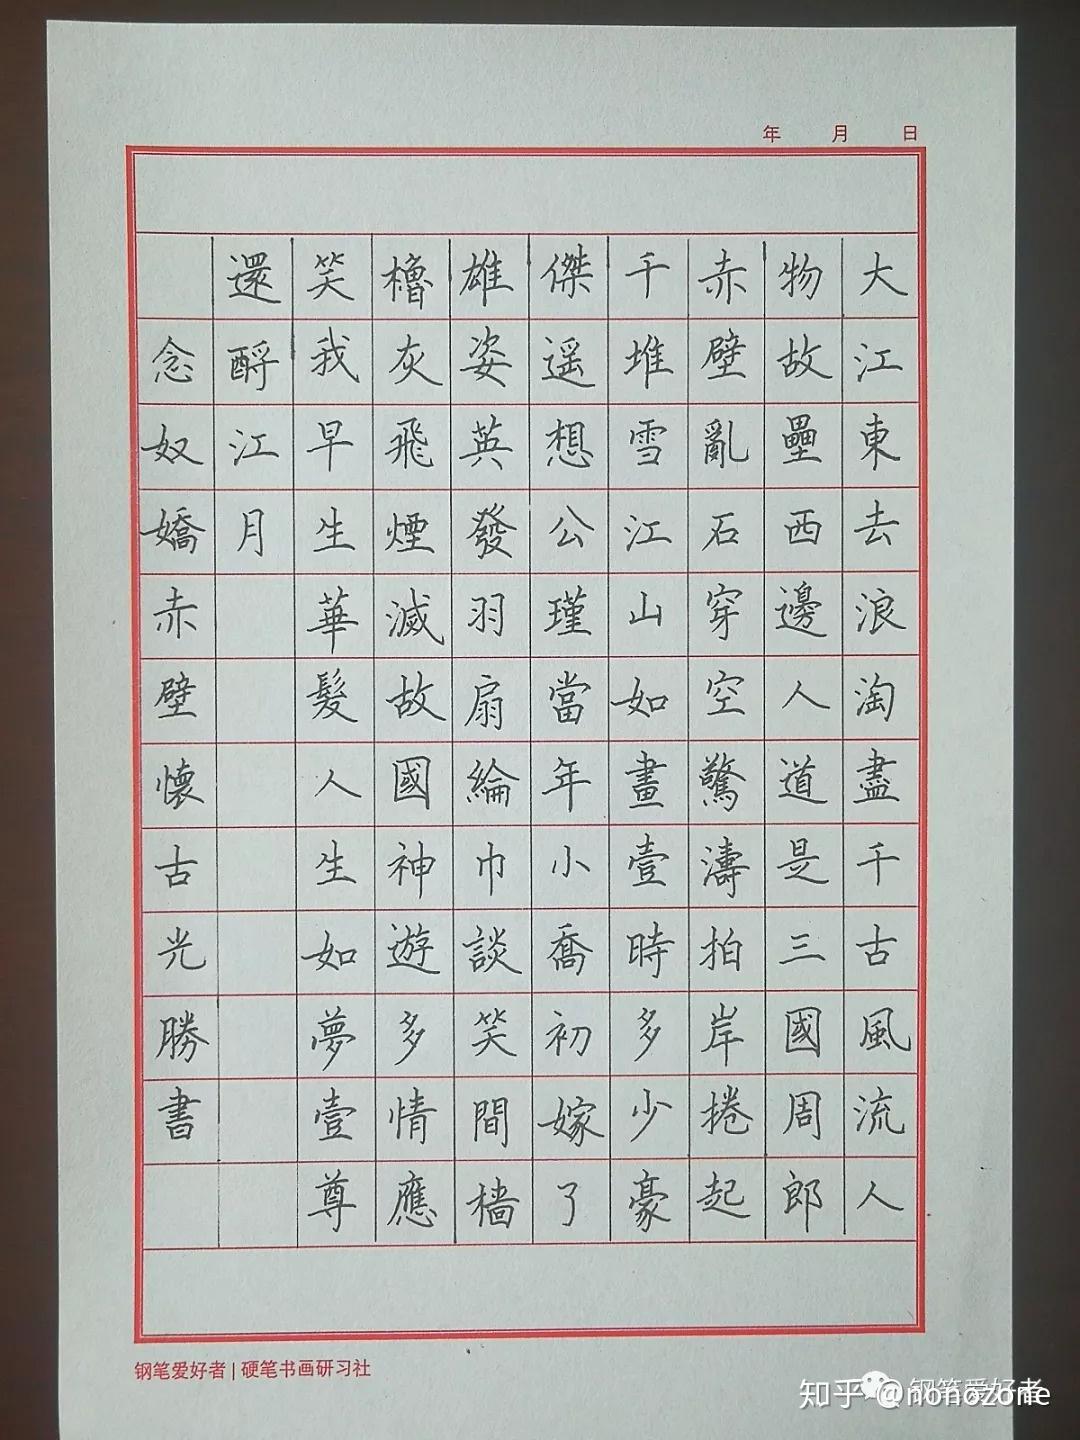 年 月 日
大江東去浪淘盡千古風流人
物故壘西邊人道是三國周郎
赤壁亂石穿空驚濤拍岸捲起
千堆雪江山如畫壹時多少豪
傑遥想公瑾當年小喬初嫁了
雄姿英發羽扇綸巾談笑間檣
櫓灰飛煙滅故國神遊多情應
笑我早生華髮人生如夢壹尊
還酹江月
念奴嬌赤壁懷古光勝書
钢笔爱好者 | 硬笔书画研习社
钢笔爱好者
知乎 @nonozone